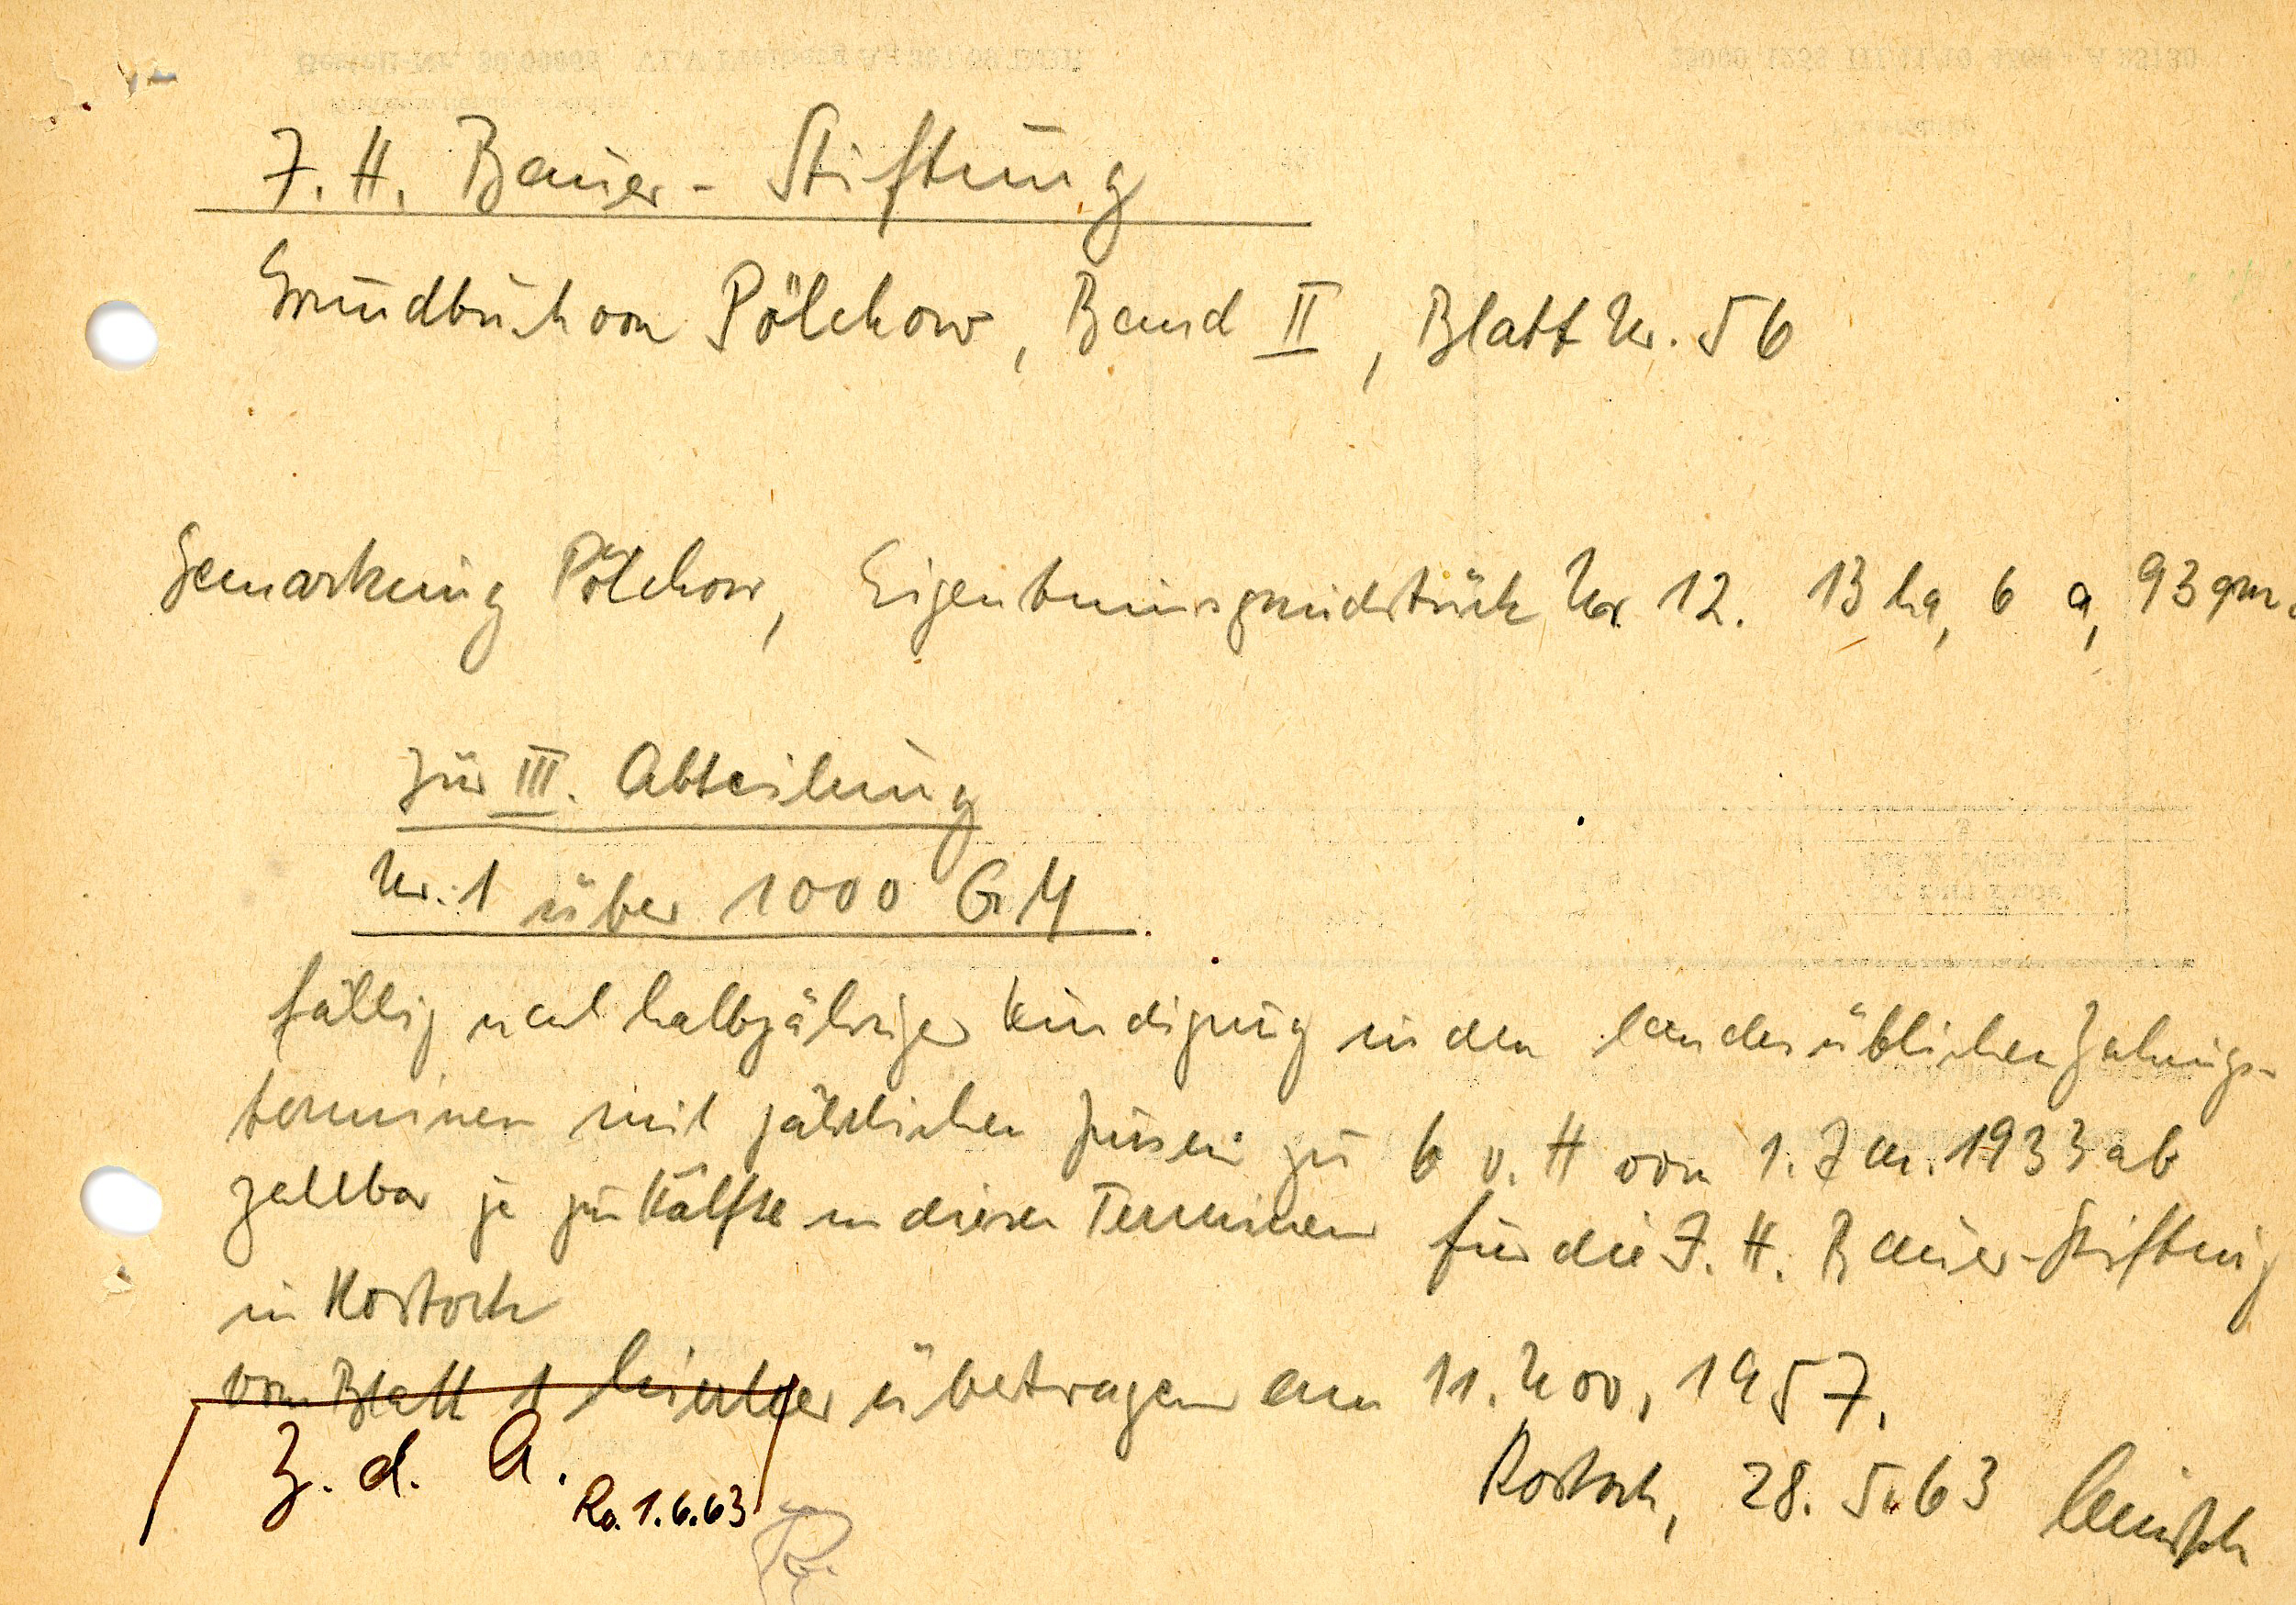 J. H. Bauer-Stiftung
Grundbuch von Pölchow, Band II, Blatt Nr. 56
Gemarkung Pölchow, Eigentumsgrundstück Nr 12. 13 ha, 6 a, 93 qm.
zur III. Abteilung
Nr. 1 über 1000 GM.
fällig nach halbjähriger Kündigung in den landesüblichen Zahlungs-
terminen mit jährlichen Zinsen zu 6 v. H von 1. Jan. 1933 ab
zahlbar je zur Hälfte in diesen Terminen für die J. H. Bauer-Stiftung
in Rostock
von Blatt 1 hierher übertragen am 11. Nov, 1957.
Rostock, 28. 5. 63
Z. d. A.
Ro. 1.6.63